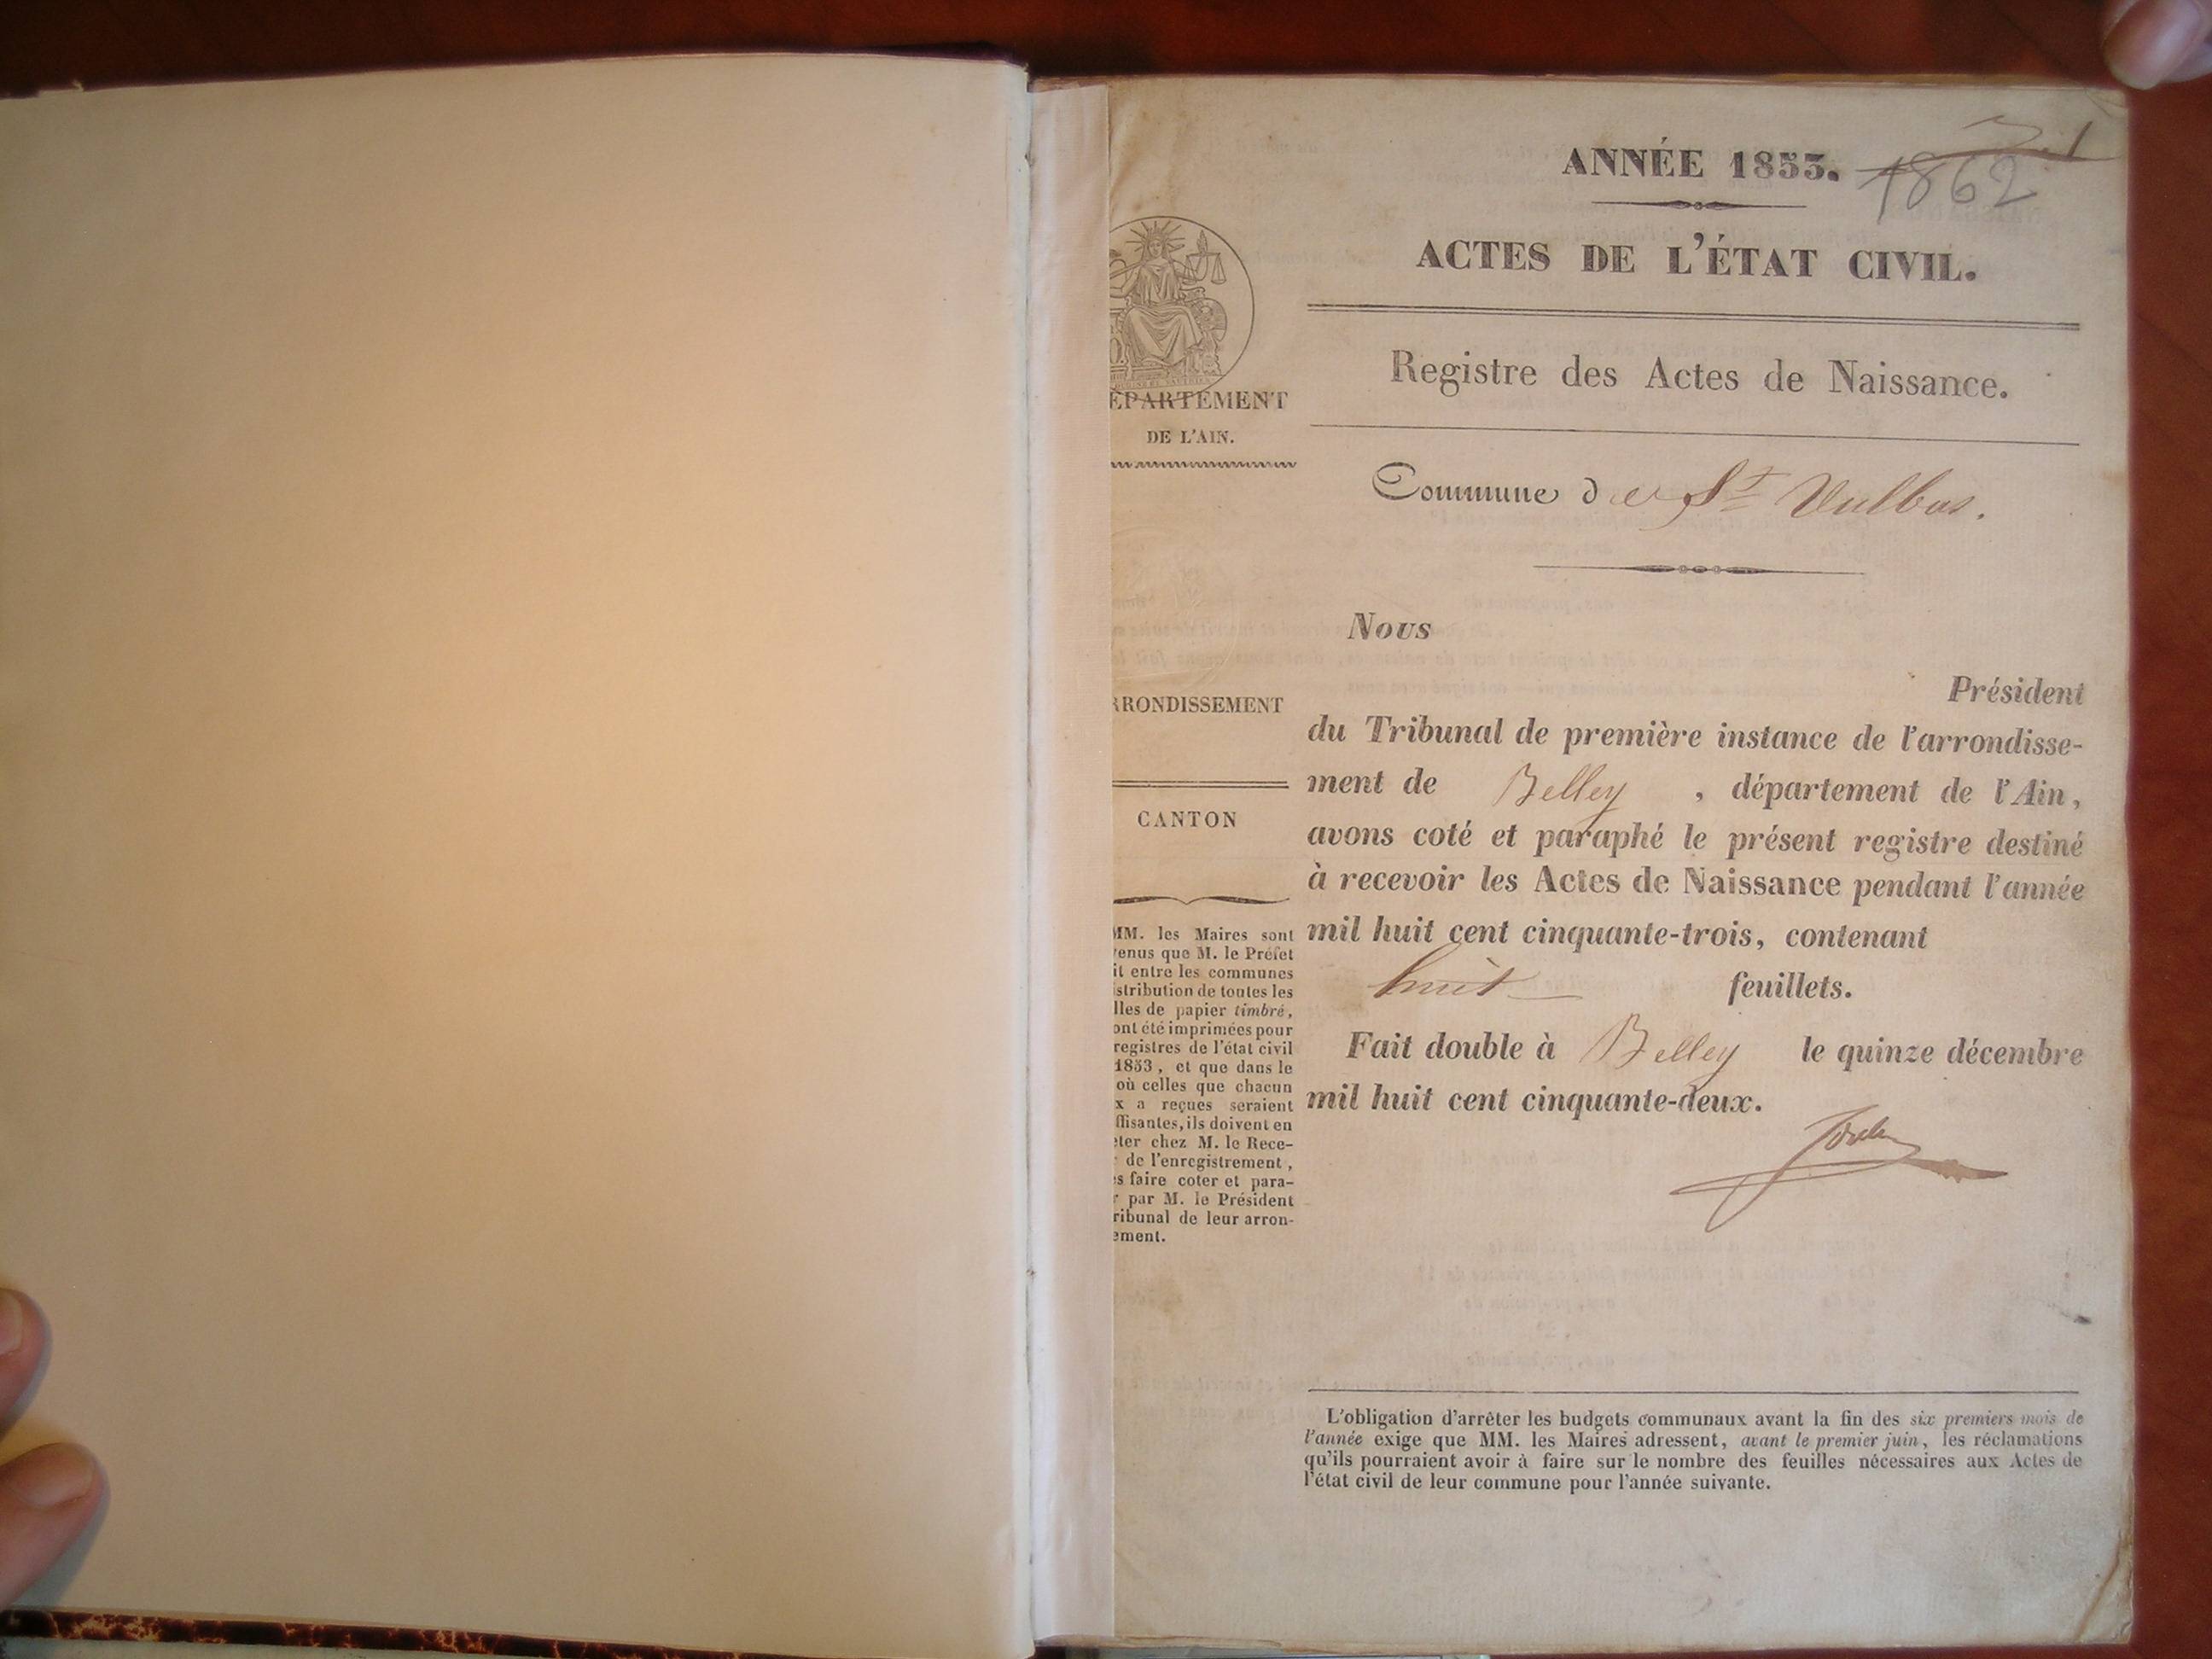 ANNÉE 1853.
1862
ACTES DE L'ÉTAT CIVIL.
Registre des Actes de Naissance.
Commune de St Vulbas.
Nous
Président
du Tribunal de première instance de l'arrondisse-
ment de Belley , département de l'Ain,
avons coté et paraphé le présent registre destiné
à recevoir les Actes de Naissance pendant l'année
mil huit cent cinquante-trois, contenant
huit feuillets.
Fait double à Belley le quinze décembre
mil huit cent cinquante-deux.
L'obligation d'arrêter les budgets communaux avant la fin des six premiers mois de
l'année exige que MM. les Maires adressent, avant le premier juin, les réclamations
qu'ils pourraient avoir à faire sur le nombre des feuilles nécessaires aux Actes de
l'état civil de leur commune pour l'année suivante.
EPARTEMENT
DE L'AIN.
RRONDISSEMENT
CANTON
MM. les Maires sont
enus que M. le Préfet
it entre les communes
istribution de toutes les
lles de papier timbré,
ont été imprimées pour
registres de l'état civil
1853, et que dans le
où celles que chacun
x a reçues seraient
ffisantes, ils doivent en
eter chez M. le Rece-
de l'enregistrement,
es faire coter et para-
r par M. le Président
ribunal de leur arron-
ement.